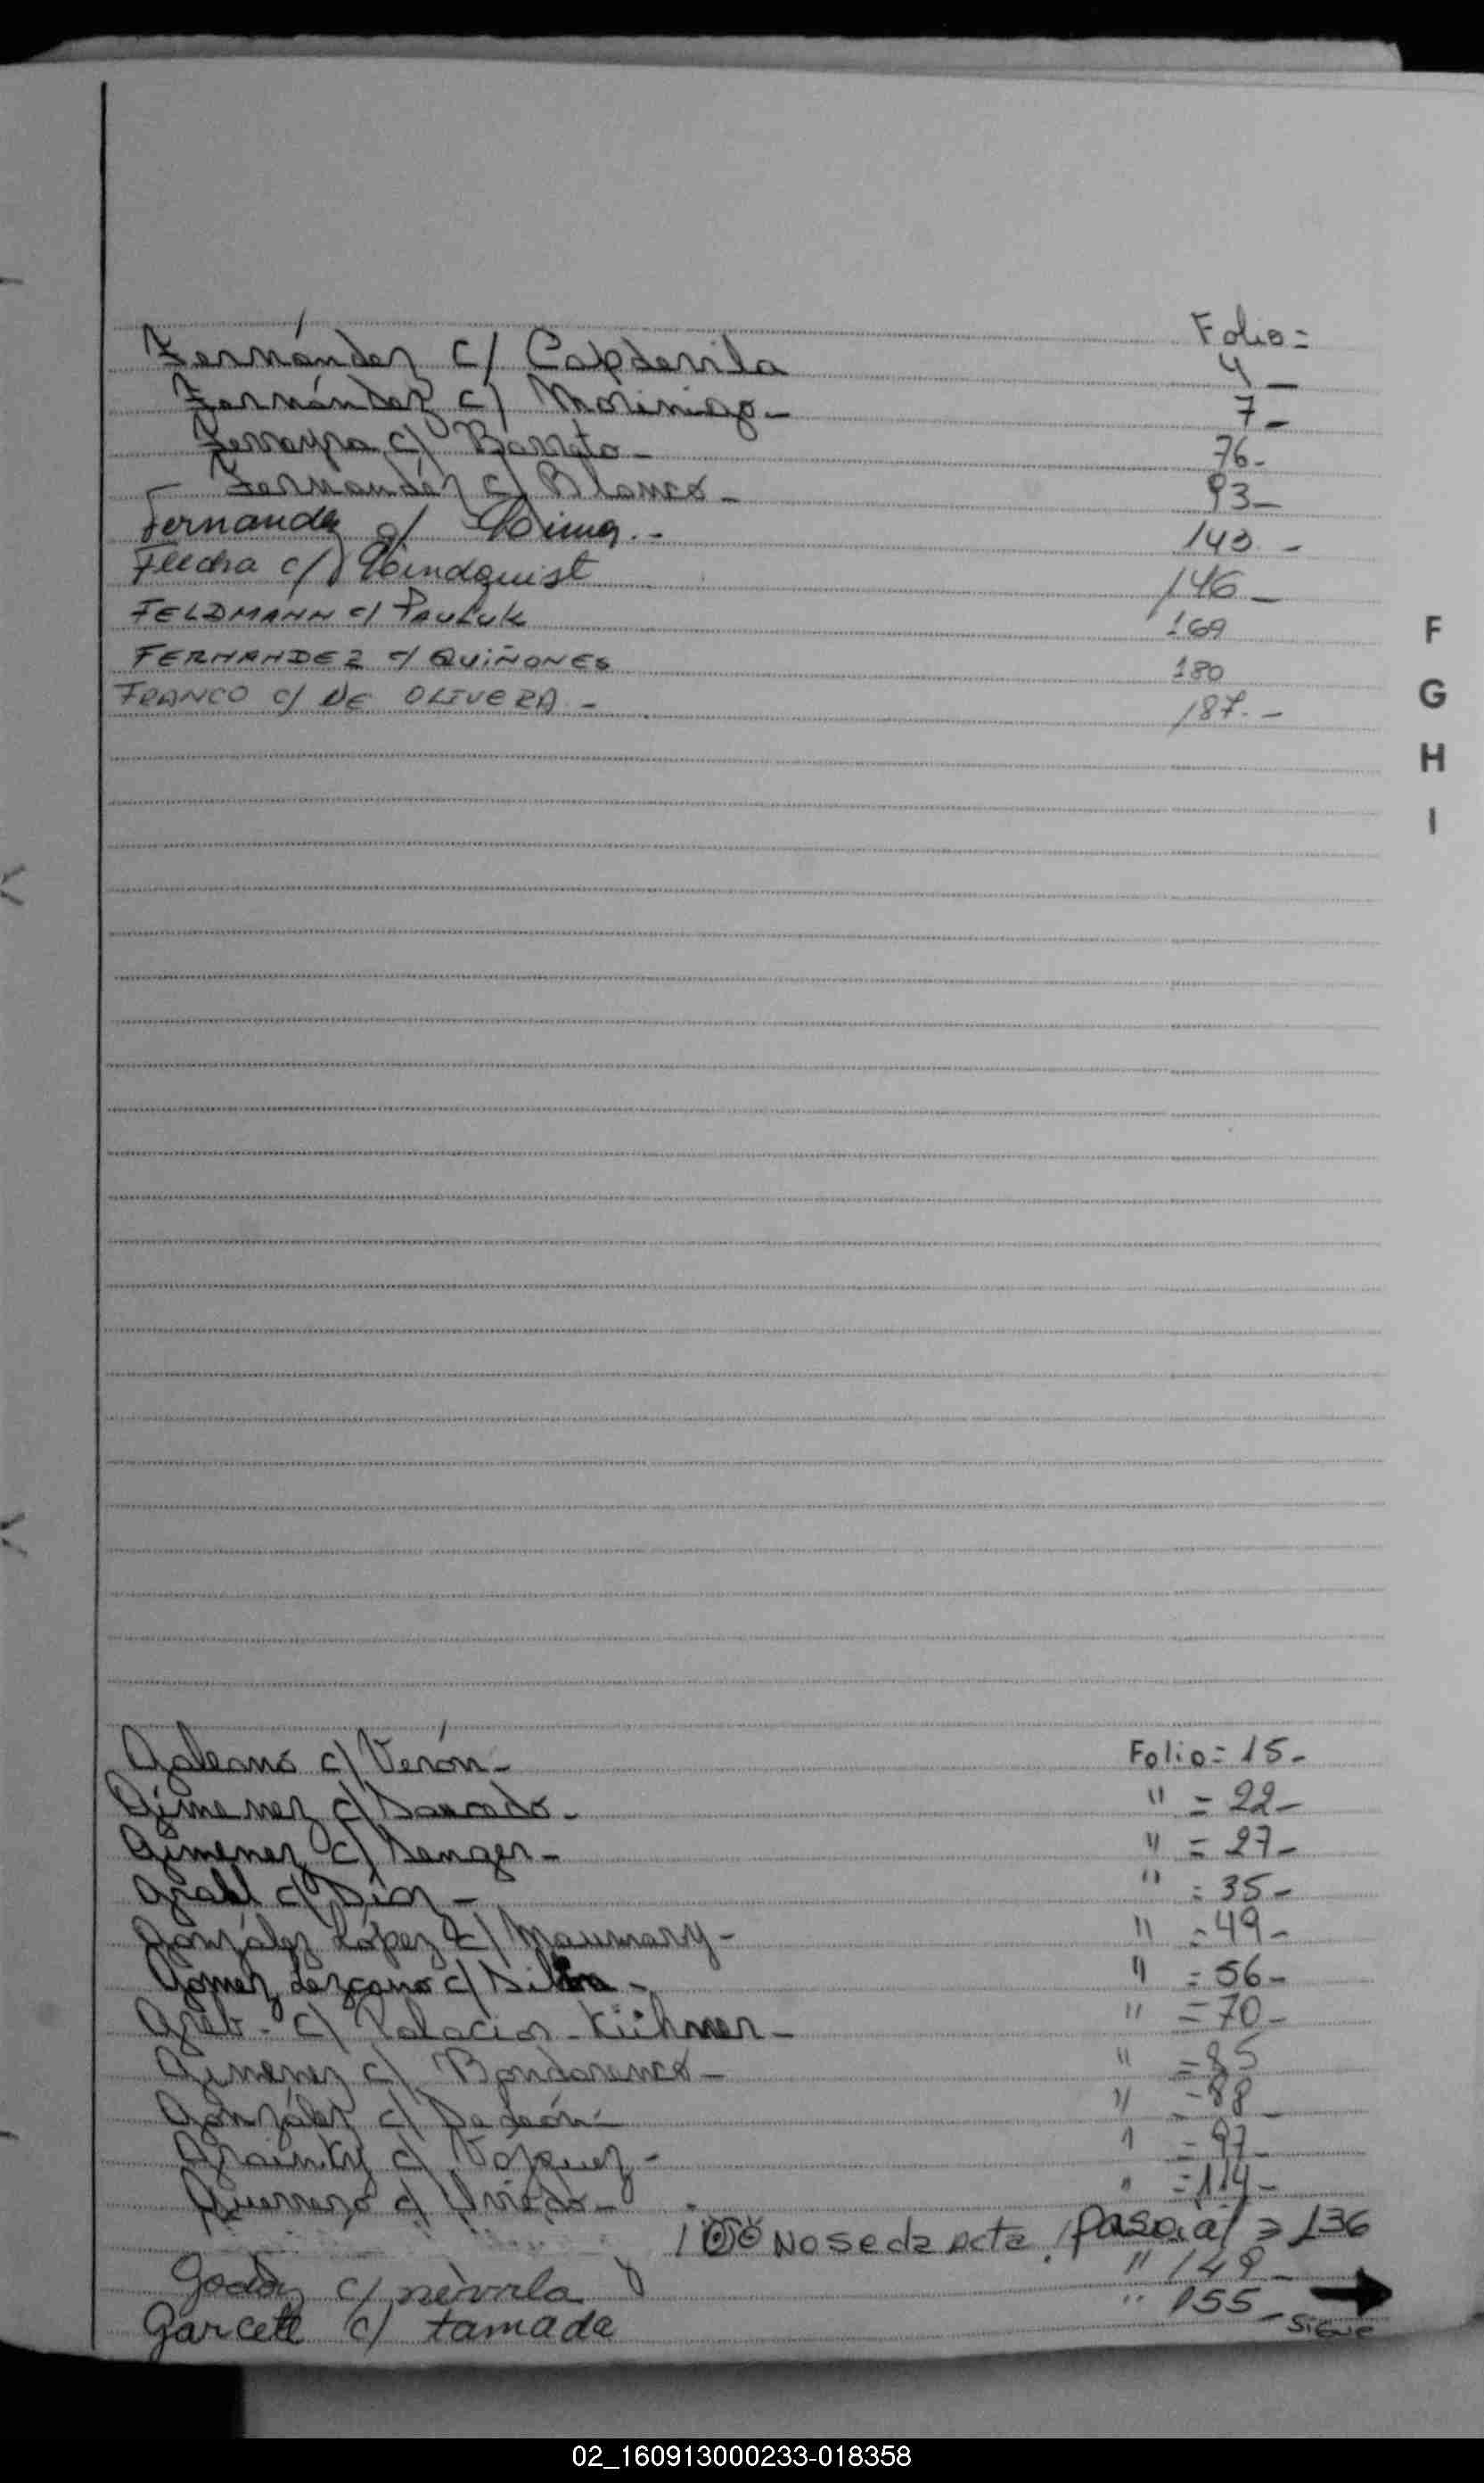 Folio=
Fernández c/ Capdevila 4_
Fernández c/ Morinigo_ 7_
Ferreyra c/ Barreto_ 76-
Fernandez c/ Blanco_ 93_
Fernandez c/ 143_
Flecha c/ Lindquist 146_
FELDMANN c/ PAULUK 169
FERNANDEZ c/ QUIÑONES 180
FRANCO c/ DE OLIVERA._ 187._
F
G
H
I
Galeano c/ Verón_ Folio=15-
Gimenez c/ " = 22_
Gimenez c/ Senger_ " = 27_
Grabl c/ Díaz_ " = 35_
González López c/ Maumary_ " = 49_
Gomez Lezcano c/ Silva_ " = 56_
Greb- c/ Palacios-Kühner_ " = 70_
Gimenez c/ Bondarenco_ " = 85
González c/ De León_ " = 88_
c/ Vazquez_ " = 97_
Guerrero c/ Oviedo_ " = 114_
No se da acta. Pasar al 136
Godoy c/ " 149_
Garcete c/ tamada " 155_
SIGUE
02_160913000233-018358